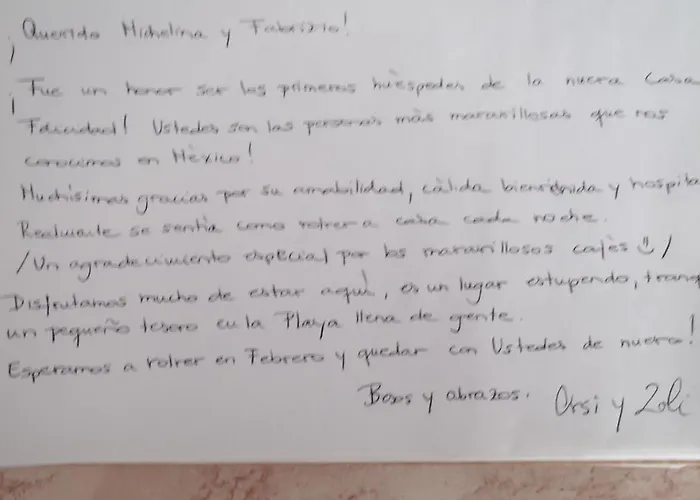 ¡Querido Michelina y Fabrizio!
¡Fue un honor ser los primeros huèspedes de la nueva Casa
Felicidad! Ustedes son las personas màs maravillosas que nos
conocimos en Mèxico!
Muchísimas gracias por su amabilidad, càlida bienvenida y hospita
Realmente se sentía como volver a casa cada noche.
/Un agradecimiento especial por los maravillosos cafès ☺/
Disfrutamos mucho de estar aquì, es un lugar estupendo, tranq
un pequeño tesoro en la Playa llena de gente.
Esperamos a volver en Febrero y quedar con Ustedes de nuevo!
Besos y abrazos. Orsi y Zoli